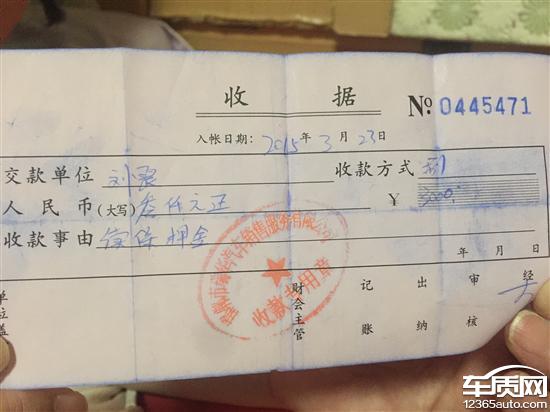 收 据 № 0445471
入帐日期：2015年3月23日
交款单位 刘 收款方式
人民币(大写) 叁仟元正 ￥ 3000.
收款事由 保 押金
年 月 日
汽车销售服务有限公司
收款专用章
财会主管 记账 出纳 审核 经
单位盖
车质网
12365auto.com